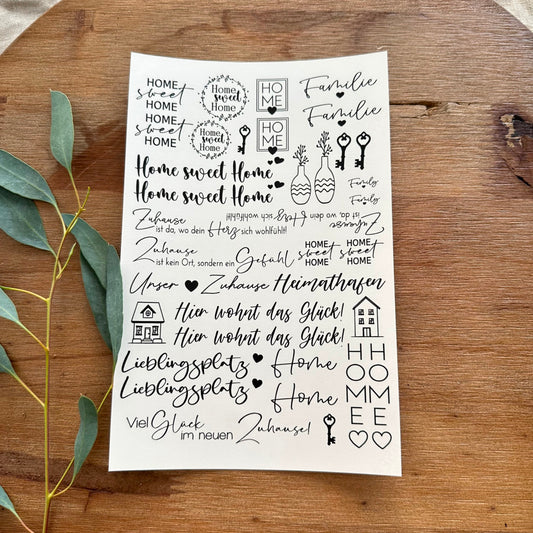 HOME
sweet
HOME
Home
sweet
Home
HO
ME
Familie
Familie
HOME
sweet
HOME
Home
sweet
Home
HO
ME
Home sweet Home
Home sweet Home
Family
Family
Zuhause
ist da, wo dein Herz sich wohlfühlt!
Zuhause
ist da, wo dein Herz sich wohlfühlt!
Zuhause
ist kein Ort, sondern ein Gefühl
HOME
sweet
HOME
HOME
sweet
HOME
Unser Zuhause Heimathafen
Hier wohnt das Glück!
Hier wohnt das Glück!
Lieblingsplatz
Lieblingsplatz
Home
Home
HOME
HOME
Viel Glück
im neuen Zuhause!